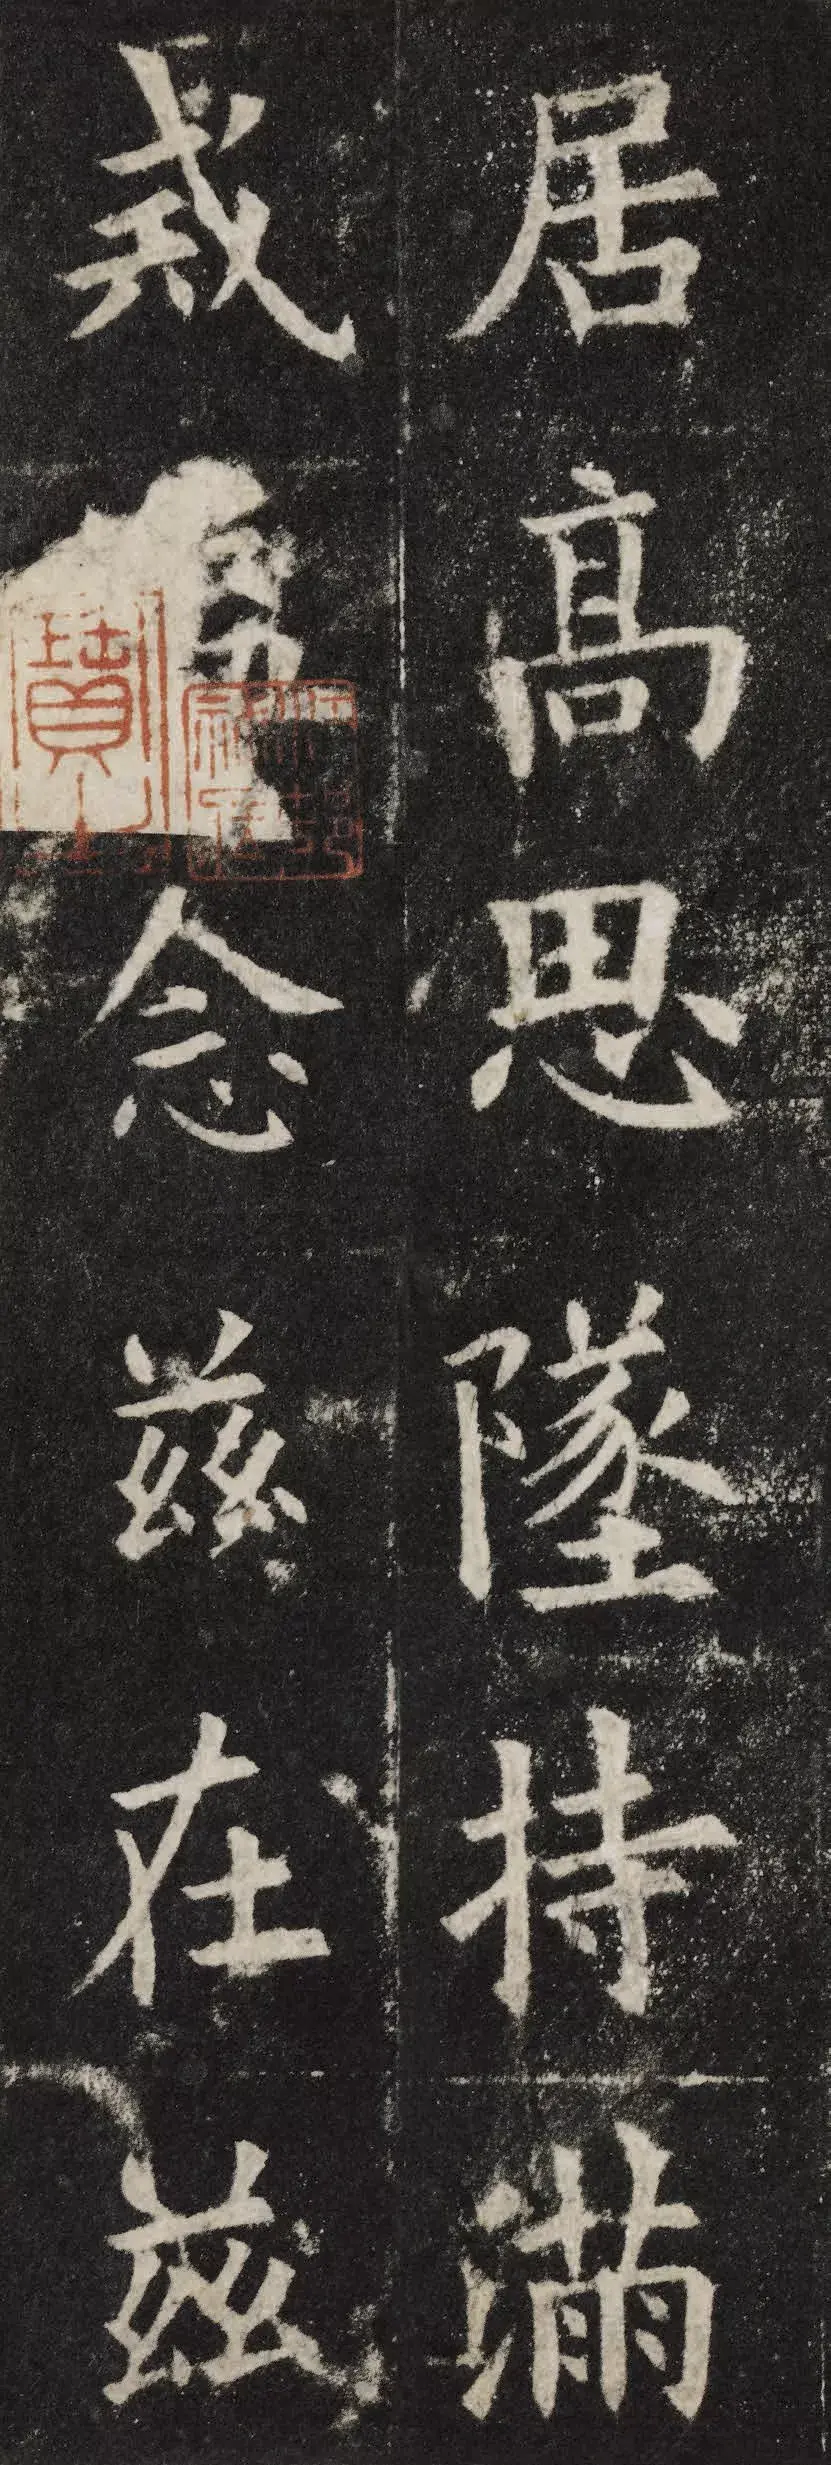 居高思墜持滿
戒念兹在兹